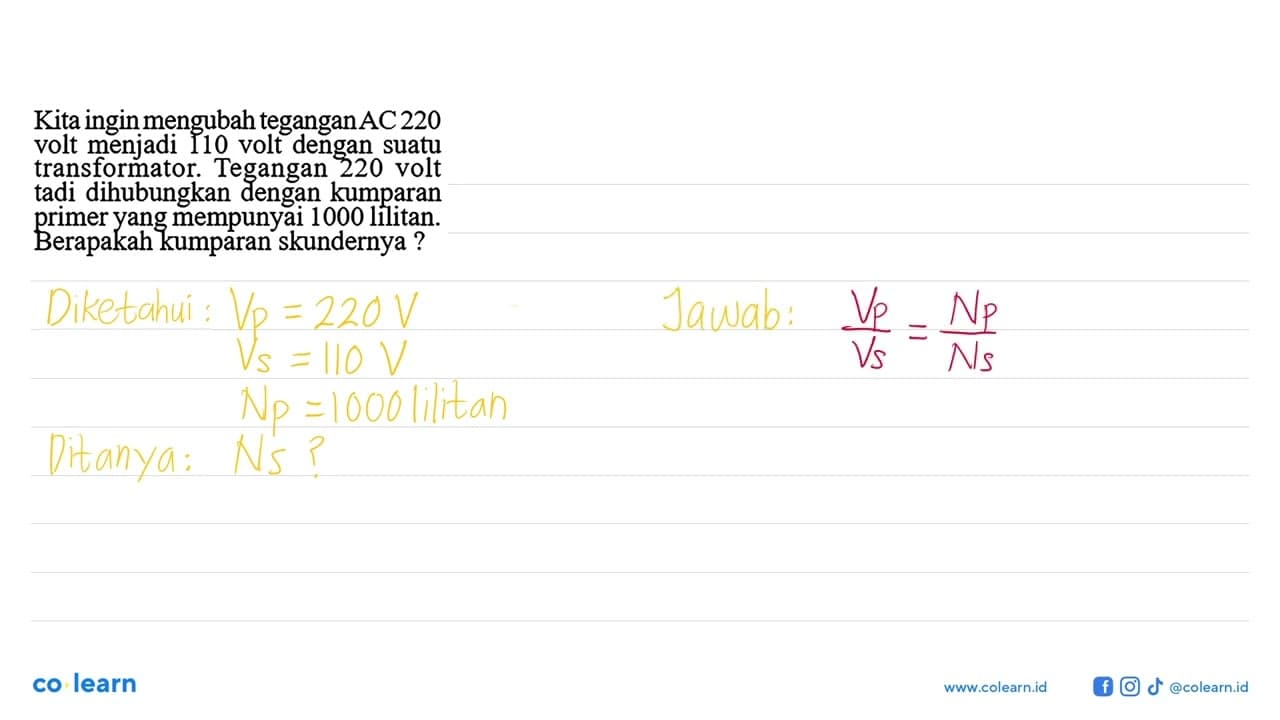 Kita ingin mengubah tegangan AC 220
volt menjadi 110 volt dengan suatu
transformator. Tegangan 220 volt
tadi dihubungkan dengan kumparan
primer yang mempunyai 1000 lilitan.
Berapakah kumparan skundernya ?
Diketahui : Vp = 220 V
Vs = 110 V
Np = 1000 lilitan
Ditanya : Ns ?
Jawab : Vp/Vs = Np/Ns
co learn
www.colearn.id @colearn.id